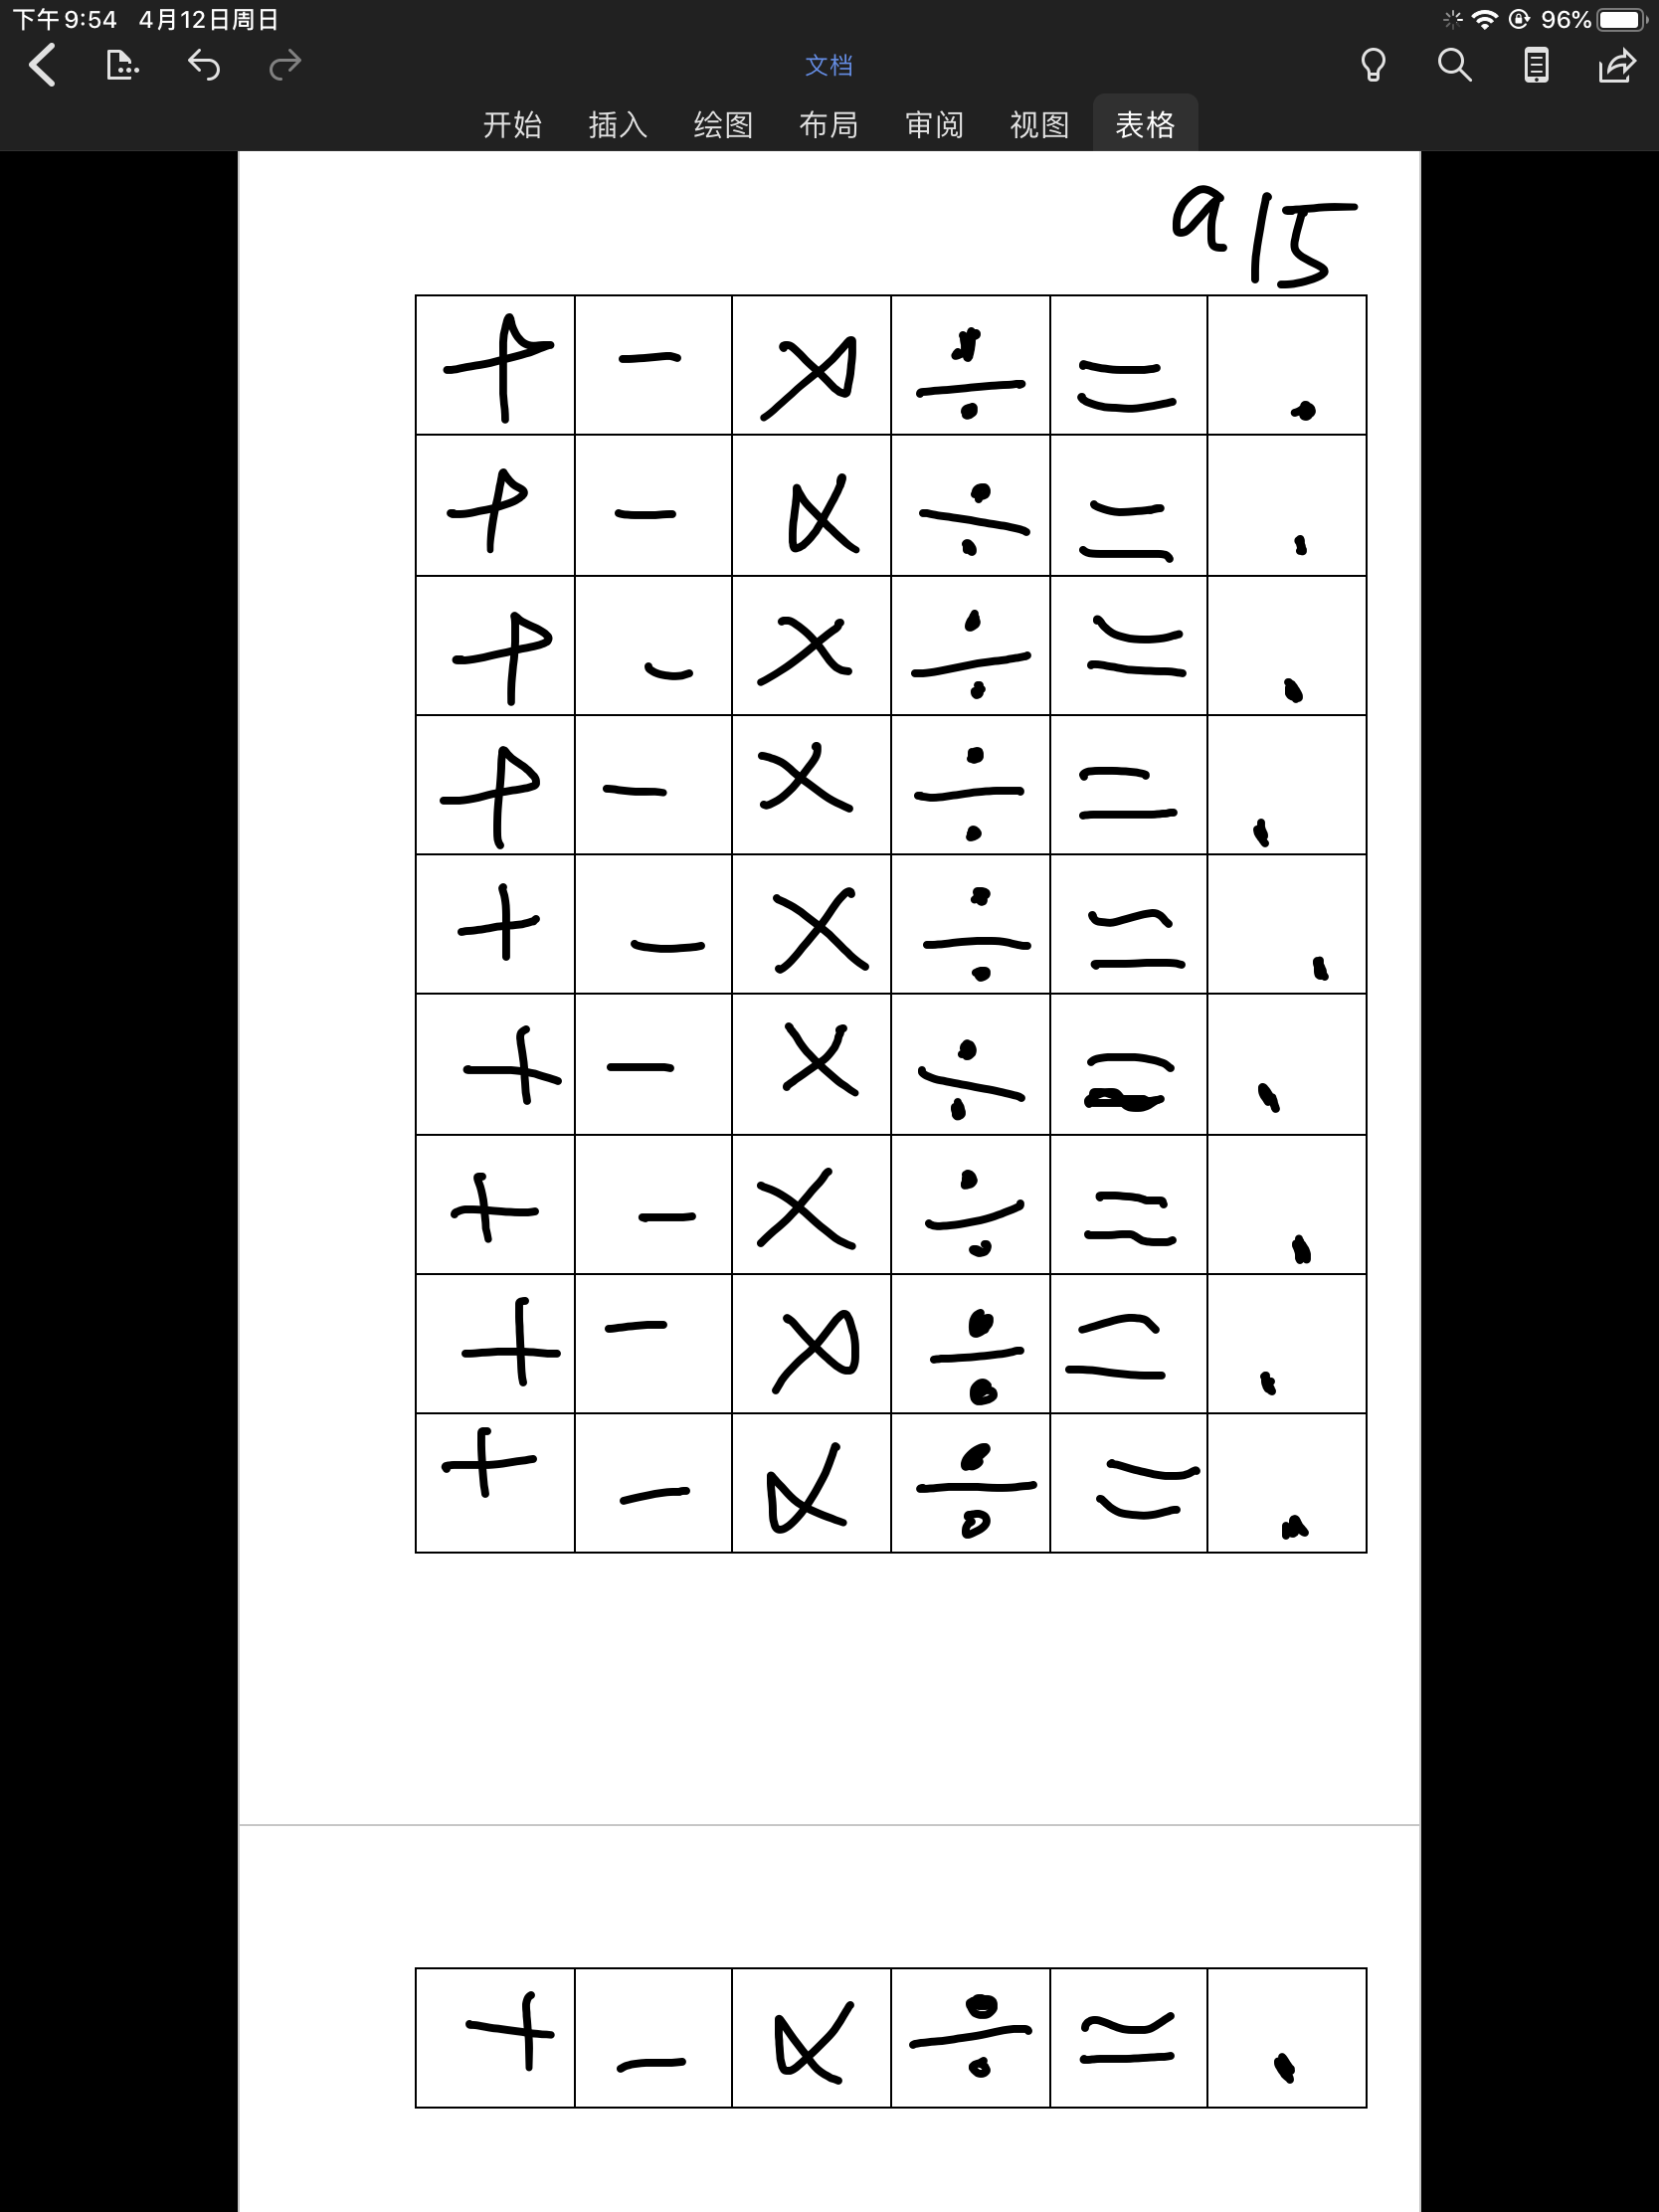 下午9:54 4月12日周日 96%
文档
开始 插入 绘图 布局 审阅 视图 表格
a15
+ - × ÷ = .
+ - × ÷ = .
+ - × ÷ = .
+ - × ÷ = .
+ - × ÷ = .
+ - × ÷ = .
+ - × ÷ = .
+ - × ÷ = .
+ - × ÷ = .
+ - × ÷ = .